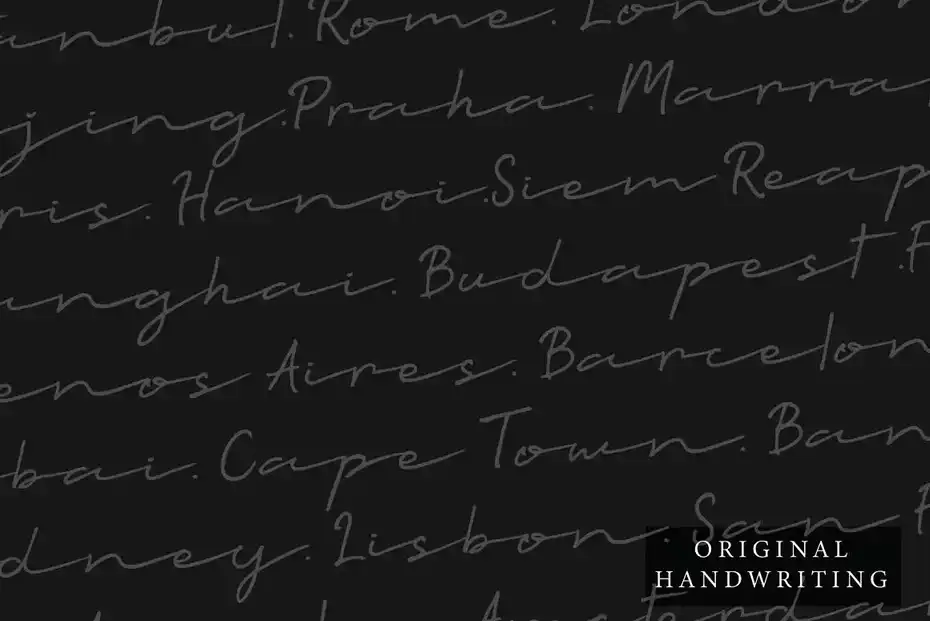 anbul. Rome. London
jing. Praha. Marra
ris. Hanoi. Siem Reap
anghai. Budapest. F
enos Aires. Barcelon
bai. Cape Town. Ban
dney. Lisbon. San F
Amsterda
ORIGINAL
HANDWRITING